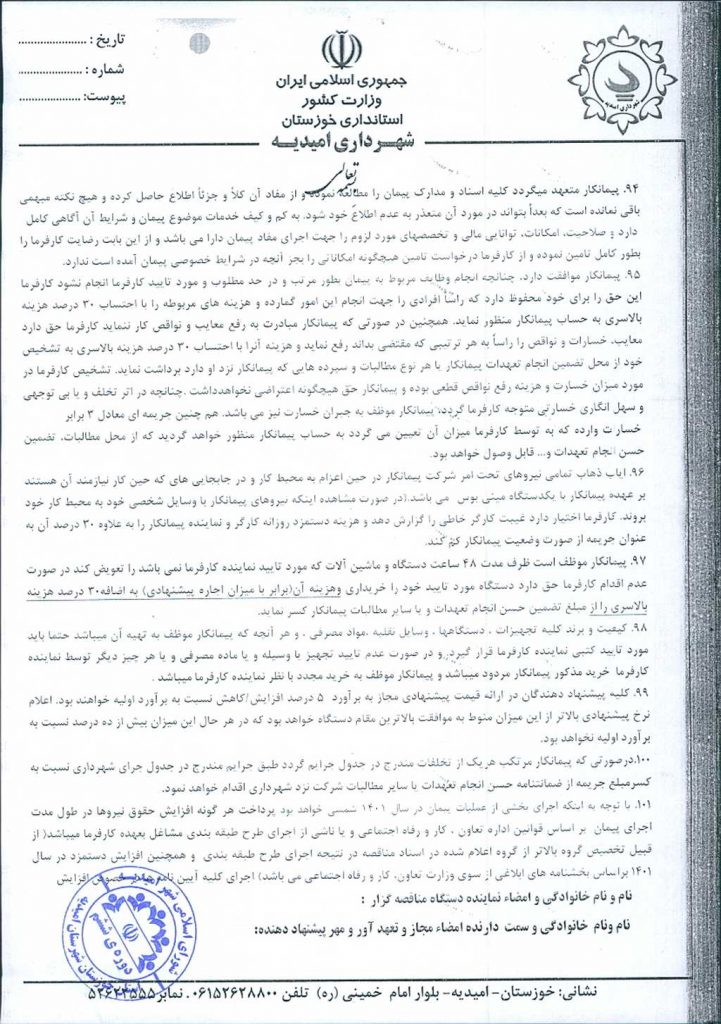 تاریخ : ......................
شماره : ......................
پیوست: ......................
جمهوری اسلامی ایران
وزارت کشور
استانداری خوزستان
شهرداری امیدیه
شهرداری امیدیه
بسمه تعالی
۹۴. پیمانکار متعهد میگردد کلیه اسناد و مدارک پیمان را مطالعه نموده و از مفاد آن کلاً و جزئاً اطلاع حاصل کرده و هیچ نکته مبهمی
باقی نمانده است که بعداً بتواند در مورد آن متعذر به عدم اطلاع خود شود. به کم و کیف خدمات موضوع پیمان و شرایط آن آگاهی کامل
دارد و صلاحیت، امکانات، توانایی مالی و تخصصهای مورد لزوم را جهت اجرای مفاد پیمان دارا می باشد و از این بابت رضایت کارفرما را
بطور کامل تامین نموده و از کارفرما درخواست تامین هیچگونه امکاناتی را بجز آنچه در شرایط خصوصی پیمان آمده است ندارد.
۹۵. پیمانکار موافقت دارد، چنانچه انجام وظایف مربوط به پیمان بطور مرتب و در حد مطلوب و مورد تایید کارفرما انجام نشود کارفرما
این حق را برای خود محفوظ دارد که راساً افرادی را جهت انجام این امور گمارده و هزینه های مربوطه را با احتساب ۳۰ درصد هزینه
بالاسری به حساب پیمانکار منظور نماید. همچنین در صورتی که پیمانکار مبادرت به رفع معایب و نواقص کار ننماید کارفرما حق دارد
معایب، خسارات و نواقص را راساً به هر ترتیبی که مقتضی بداند رفع نماید و هزینه آنرا با احتساب ۳۰ درصد هزینه بالاسری به تشخیص
خود از محل تضمین انجام تعهدات پیمانکار یا هر نوع مطالبات و سپرده هایی که پیمانکار نزد او دارد برداشت نماید. تشخیص کارفرما در
مورد میزان خسارت و هزینه رفع نواقص قطعی بوده و پیمانکار حق هیچگونه اعتراضی نخواهدداشت .چنانچه در اثر تخلف و یا بی توجهی
و سهل انگاری خسارتی متوجه کارفرما گردد، پیمانکار موظف به جبران خسارت نیز می باشد. هم چنین جریمه ای معادل ۳ برابر
خسارت وارده که به توسط کارفرما میزان آن تعیین می گردد به حساب پیمانکار منظور خواهد گردید که از محل مطالبات، تضمین
حسن انجام تعهدات و... قابل وصول خواهد بود.
۹۶. ایاب ذهاب تمامی نیروهای تحت امر شرکت پیمانکار در حین اعزام به محیط کار و در جابجایی های که حین کار نیازمند آن هستند
بر عهده پیمانکار با یکدستگاه مینی بوس می باشد.(در صورت مشاهده اینکه نیروهای پیمانکار با وسایل شخصی خود به محیط کار خود
بروند. کارفرما اختیار دارد غیبت کارگر خاطی را گزارش دهد و هزینه دستمزد روزانه کارگر و نماینده پیمانکار را به علاوه ۳۰ درصد آن به
عنوان جریمه از صورت وضعیت پیمانکار کم کند.
۹۷. پیمانکار موظف است ظرف مدت ۴۸ ساعت دستگاه و ماشین آلات که مورد تایید نماینده کارفرما نمی باشد را تعویض کند در صورت
عدم اقدام کارفرما حق دارد دستگاه مورد تایید خود را خریداری وهزینه آن(برابر با میزان اجاره پیشنهادی) به اضافه۳۰ درصد هزینه
بالاسری را از مبلغ تضمین حسن انجام تعهدات و یا سایر مطالبات پیمانکار کسر نماید.
۹۸. کیفیت و برند کلیه تجهیزات ، دستگاهها ، وسایل نقلیه ،مواد مصرفی ، و هر آنچه که پیمانکار موظف به تهیه آن میباشد حتما باید
مورد تایید کتبی نماینده کارفرما قرار گیرد.و در صورت عدم تایید تجهیز یا وسیله و یا ماده مصرفی و یا هر چیز دیگر توسط نماینده
کارفرما خرید مذکور پیمانکار مردود میباشد و پیمانکار موظف به خرید مجدد با نظر نماینده کارفرما میباشد .
۹۹. کلیه پیشنهاد دهندگان در ارائه قیمت پیشنهادی مجاز به برآورد ۵ درصد افزایش/کاهش نسبت به برآورد اولیه خواهند بود. اعلام
نرخ پیشنهادی بالاتر از این میزان منوط به موافقت بالاترین مقام دستگاه خواهد بود که در هر حال این میزان بیش از ده درصد نسبت به
برآورد اولیه نخواهد بود.
۱۰۰.درصورتی که پیمانکار مرتکب هریک از تخلفات مندرج در جدول جرایم گردد طبق جرایم مندرج در جدول جرای شهرداری نسبت به
کسرمبلغ جریمه از ضمانتنامه حسن انجام تعهدات یا سایر مطالبات شرکت نزد شهرداری اقدام خواهد نمود.
۱۰۱. با توجه به اینکه اجرای بخشی از عملیات پیمان در سال ۱۴۰۱ شمسی خواهد بود پرداخت هر گونه افزایش حقوق نیروها در طول مدت
اجرای پیمان بر اساس قوانین اداره تعاون ، کار و رفاه اجتماعی و یا ناشی از اجرای طرح طبقه بندی مشاغل بعهده کارفرما میباشد( از
قبیل تخصیص گروه بالاتر از گروه اعلام شده در اسناد مناقصه در نتیجه اجرای طرح طبقه بندی و همچنین افزایش دستمزد در سال
۱۴۰۱ براساس بخشنامه های ابلاغی از سوی وزارت تعاون، کار و رفاه اجتماعی می باشد) اجرای کلیه آیین افزایش
نام و نام خانوادگی و امضاء نماینده دستگاه مناقصه گزار :
نام ونام خانوادگی و سمت دارنده امضاء مجاز و تعهد آور و مهر پیشنهاد دهنده:
شورای اسلامی شهر امیدیه
دوره ی ششم
خوزستان شهرستان امیدیه
نشانی: خوزستان- امیدیه- بلوار امام خمینی (ره) تلفن ۰۶۱۵۲۶۲۸۸۰۰ .نمابر۵۲۶۲۳۵۵۵